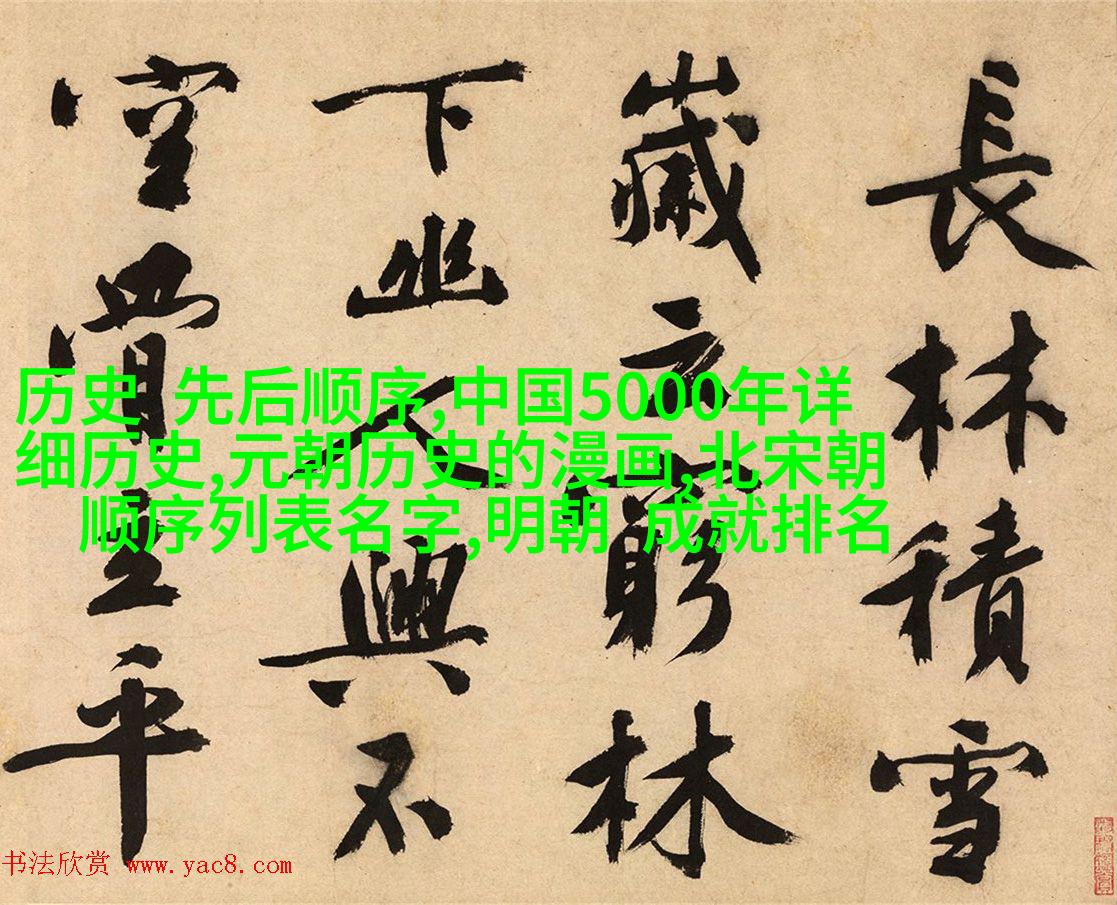 長林積雪
歲方窮林
下幽人興不
空平
历史 先后顺序,中国5000年详
细历史,元朝历史的漫画,北宋朝
顺序列表名字,明朝 成就排名
书法欣赏 www.yac8.com